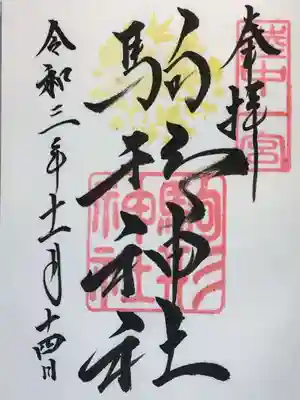 奉拝
陸中一宮
駒形神社
駒形神社
令和三年十一月十四日